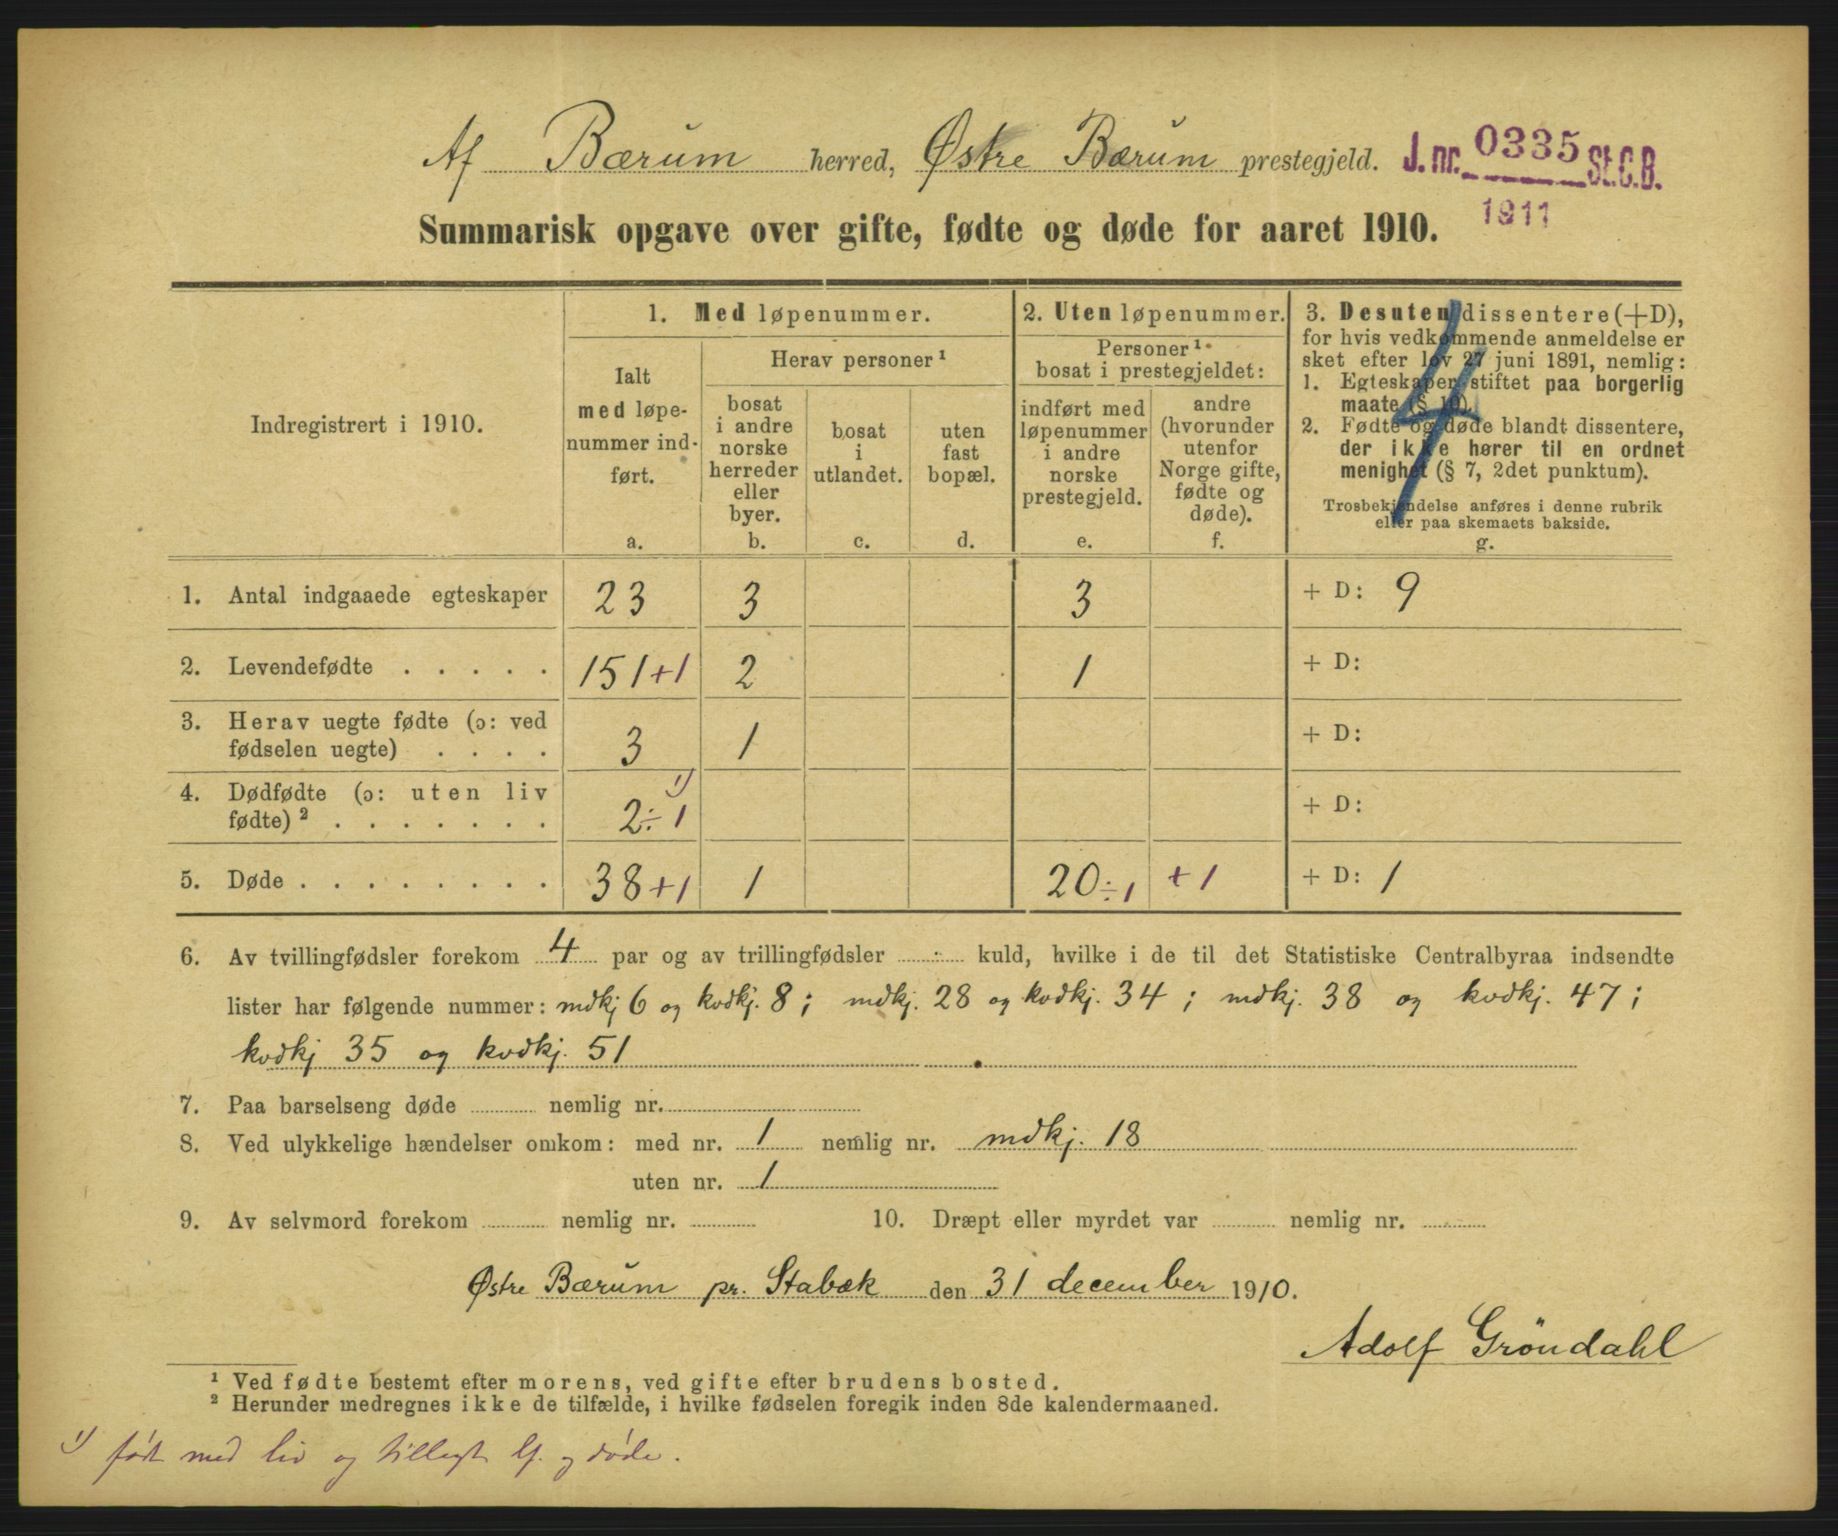 Af Bærum herred, Østre Bærum prestegjeld. J. nr. 0335 St. C. B.
1911
Summarisk opgave over gifte, fødte og døde for aaret 1910.
Indregistrert i 1910.
1. Med løpenummer.
Ialt
med løpe-
nummer ind-
ført.
a.
Herav personer ¹
bosat
i andre
norske
herreder
eller
byer.
b.
bosat
i
utlandet.
c.
uten
fast
bopæl.
d.
2. Uten løpenummer.
Personer ¹
bosat i prestegjeldet:
indført med
løpenummer
i andre
norske
prestegjeld.
e.
andre
(hvorunder
utenfor
Norge gifte,
fødte og
døde).
f.
3. Desuten dissentere (+D),
for hvis vedkommende anmeldelse er
sket efter lov 27 juni 1891, nemlig:
1. Egteskaper stiftet paa borgerlig
maate (§ 10).
2. Fødte og døde blandt dissentere,
der ikke hører til en ordnet
menighet (§ 7, 2det punktum).
Trosbekjendelse anføres i denne rubrik
eller paa skemaets bakside.
g.
4
1. Antal indgaaede egteskaper 23 3 3 + D: 9
2. Levendefødte . . . . . 151+1 2 1 + D:
3. Herav uegte fødte (ɔ: ved
fødselen uegte) . . . . 3 1 + D:
4. Dødfødte (ɔ: uten liv
fødte) ² . . . . . . . 2÷1 ¹) + D:
5. Døde . . . . . . . . 38+1 1 20÷1 +1 + D: 1
6. Av tvillingfødsler forekom 4 par og av trillingfødsler - kuld, hvilke i de til det Statistiske Centralbyraa indsendte
lister har følgende nummer: mdkj 6 og kvdkj. 8; mdkj. 28 og kvdkj. 34; mdkj. 38 og kvdkj. 47;
kvdkj 35 og kvdkj. 51
7. Paa barselseng døde nemlig nr.
8. Ved ulykkelige hændelser omkom: med nr. 1 nemlig nr. mdkj. 18
uten nr. 1
9. Av selvmord forekom nemlig nr. 10. Dræpt eller myrdet var nemlig nr.
Østre Bærum pr. Stabæk den 31 december 1910.
Adolf Gröndahl
¹ Ved fødte bestemt efter morens, ved gifte efter brudens bosted.
² Herunder medregnes ikke de tilfælde, i hvilke fødselen foregik inden 8de kalendermaaned.
¹) født med liv og tillagt lf. og døde.